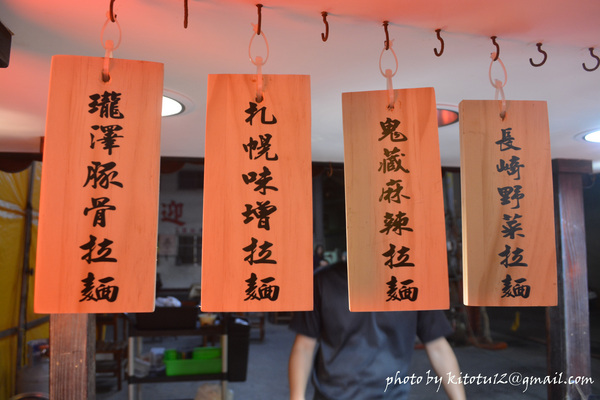 瓏澤豚骨拉麵
札幌味增拉麵
鬼藏麻辣拉麵
長崎野菜拉麵
迎
photo by kitotu12@gmail.com